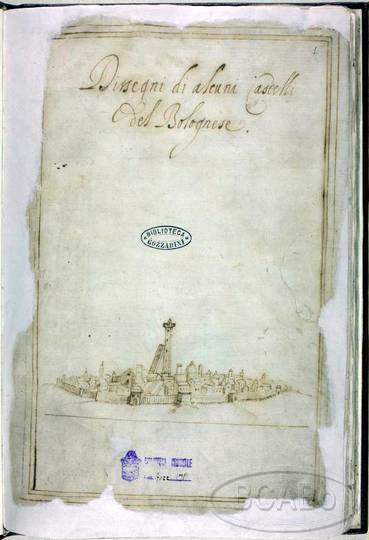 1
Dissegni di alcuni Castelli
del Bolognese.
BIBLIOTECA
GOZZADINI
BCABO